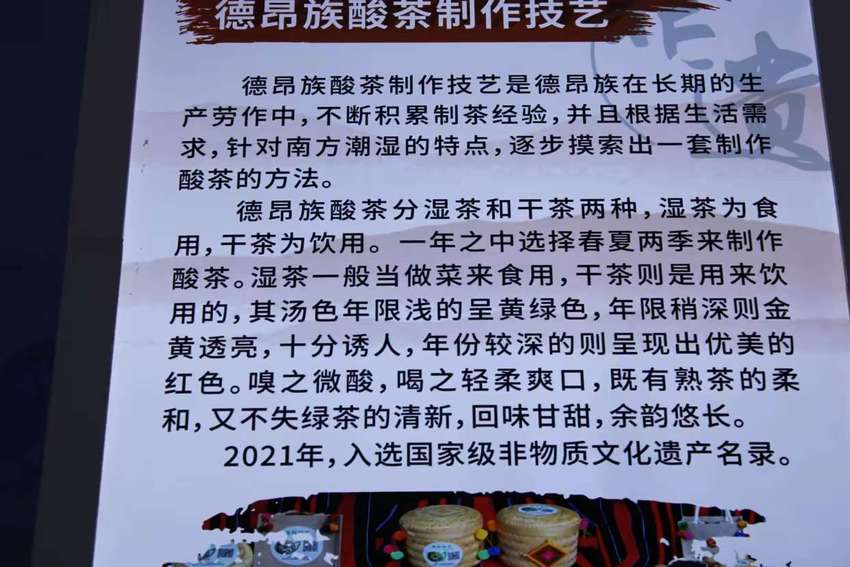 德昂族酸茶制作技艺
非遗
德昂族酸茶制作技艺是德昂族在长期的生
产劳作中，不断积累制茶经验，并且根据生活需
求，针对南方潮湿的特点，逐步摸索出一套制作
酸茶的方法。
德昂族酸茶分湿茶和干茶两种，湿茶为食
用，干茶为饮用。一年之中选择春夏两季来制作
酸茶。湿茶一般当做菜来食用，干茶则是用来饮
用的，其汤色年限浅的呈黄绿色，年限稍深则金
黄透亮，十分诱人，年份较深的则呈现出优美的
红色。嗅之微酸，喝之轻柔爽口，既有熟茶的柔
和，又不失绿茶的清新，回味甘甜，余韵悠长。
2021年，入选国家级非物质文化遗产名录。